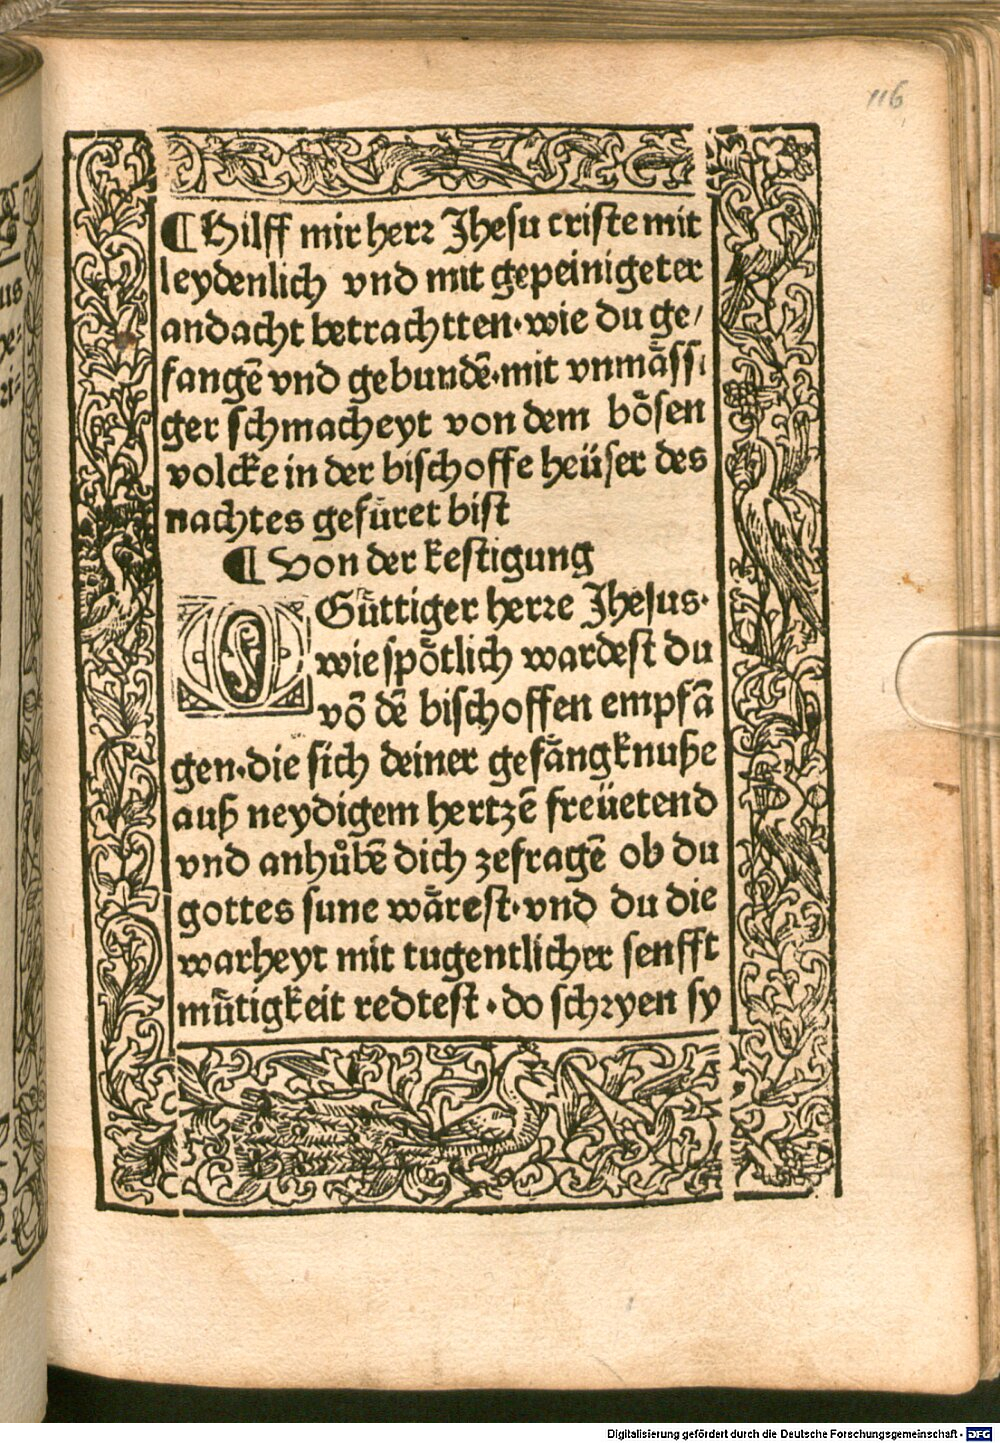 116
¶ Hilff mir herr Jhesu criste mit
leydenlich vnd mit gepeinigeter
andacht betrachtten·wie du ge/
fangē vnd gebundē·mit vnmässi
ger schmacheyt von dem bösen
volcke in der bischoffe heüser des
nachtes gefüret bist
¶ Von der kestigung
O Gůttiger herre Jhesus·
wie spötlich wardest du
vō dē bischoffen empfā
gen·die sich deiner gefängknuße
auß neydigem hertzē freüetend
vnd anhůbē dich zefragē ob du
gottes sune wärest·vnd du die
warheyt mit tugentlicher senfft
mütigkeit redtest·do schryen sy
Digitalisierung gefördert durch die Deutsche Forschungsgemeinschaft - DFG